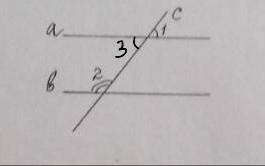 a
c
3
1
2
b